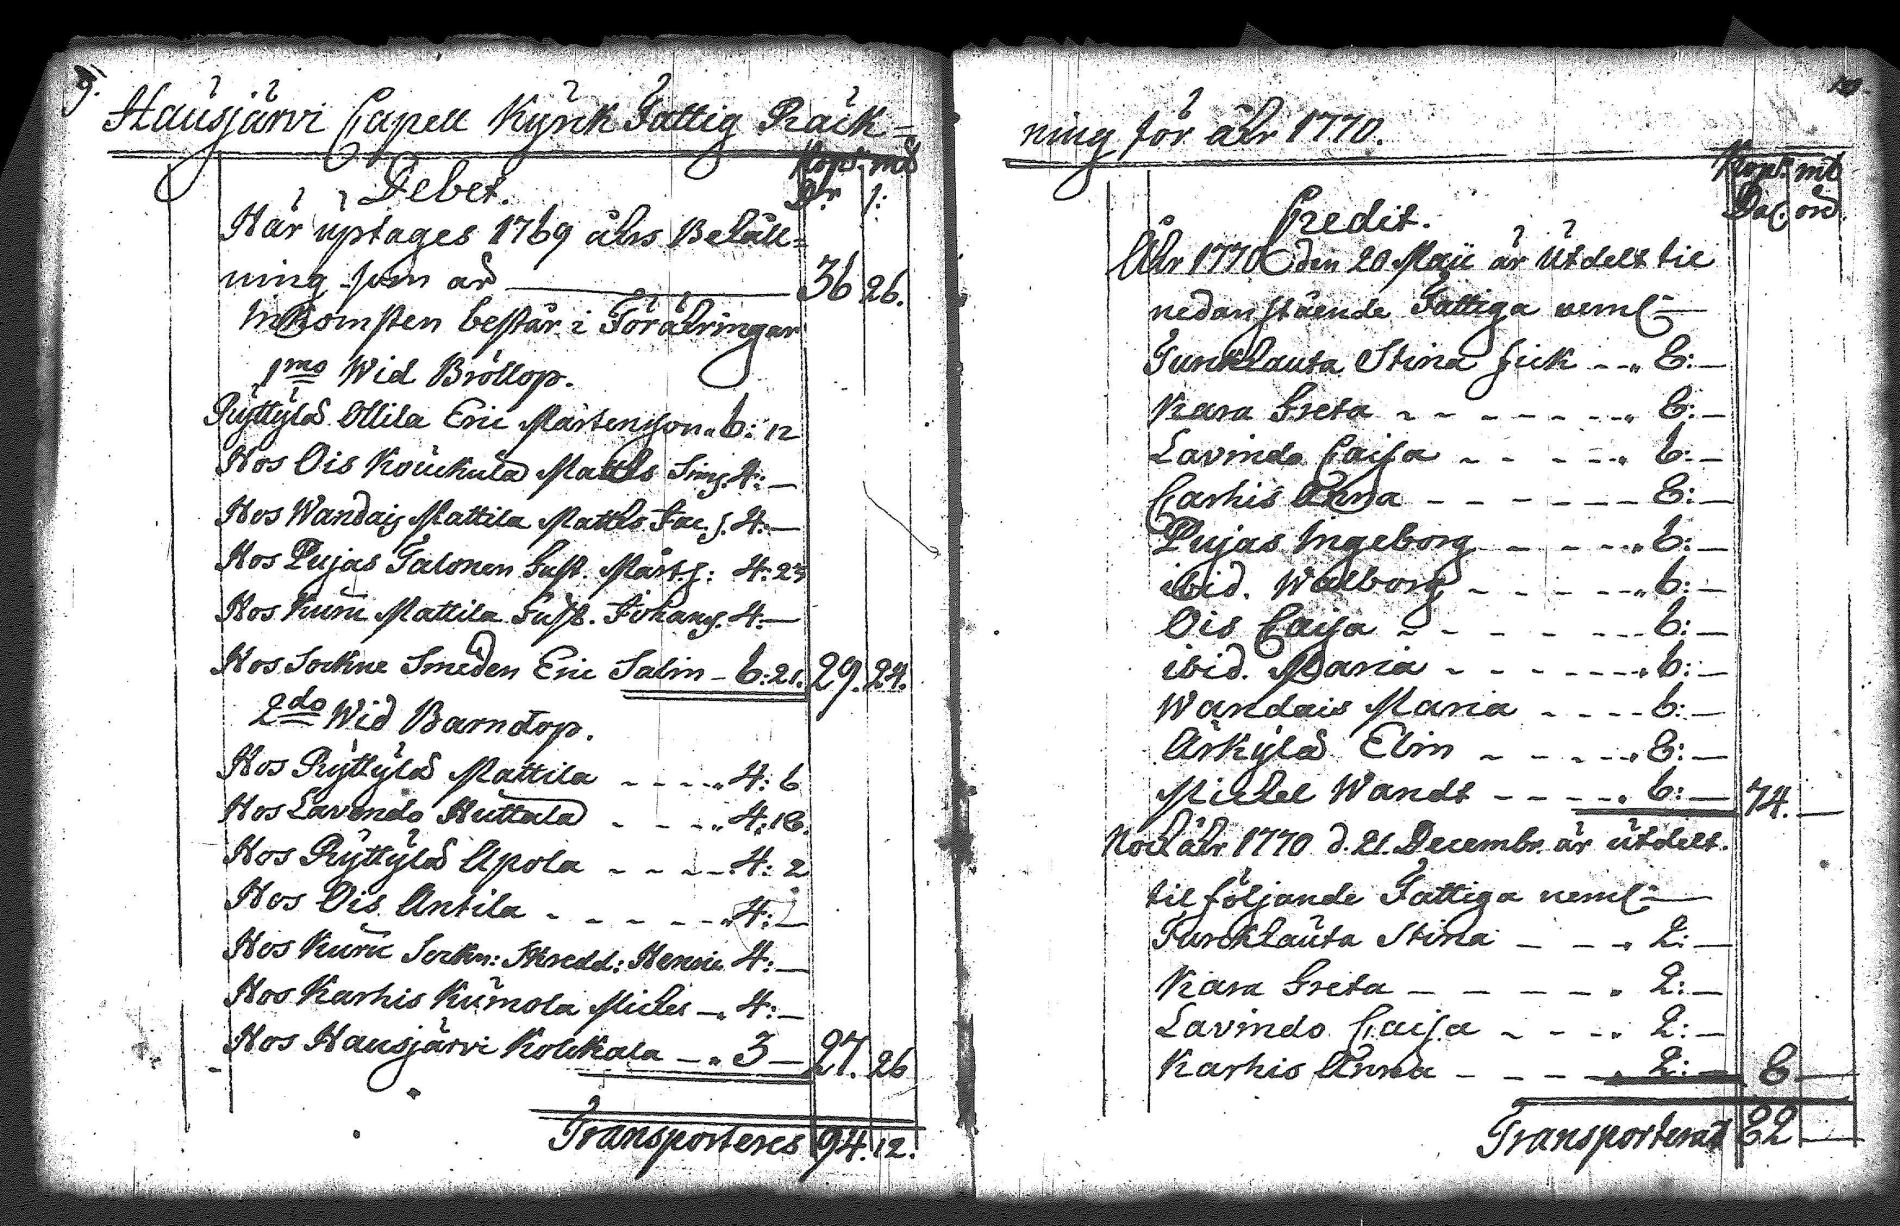 9.
Hausjärvi Capell Kyrck Fattig Räck=
Debet.
Kopr. mt
Dr
Här uptages 1769 åhrs Behåll=
ning som är 36 26.
Inkomsten består i Föräringar
1mo Wid Bröllop.
Ryttylä Ollila Eric Mårtensson 6: 12
Hos Ois Koukula Matths Sims. 4: —
Hos Wandais Mattila Matths Jac. s. 4: —
Hos Pujas Talonen Gust. Mårt.s: 4: 23
Hos Kuru Mattila Gust. Johans. 4: —
Hos Sockne Smeden Eric Salin – 6: 21. 29. 24.
2do Wid Barndop.
Hos Ryttylä Mattila 4: 6
Hos Lavindo Huttala 4: 18.
Hos Ryttylä Apola 4: 2
Hos Ois Antila 4: —
Hos Kuru Sockn: Skredd: Henric 4: —
Hos Karhis Kumola Michel 4: —
Hos Hausjärvi Kolckala 3 — 27. 26
Transporteres 94. 12.
10.
ning för åhr 1770.
Kopr. mt
Dal. örd.
Credit.
Åhr 1770 den 20 Maji är utdelt til
nedanstående Fattiga neml:
Turckhauta Stina fick 8: —
Kara Greta 8: —
Lavindo Caisa 6: —
Carhis Anna 8: —
Pujas Ingeborg 6: —
ibid. Walborg 6: —
Ois Caisa 6: —
ibid. Maria 6: —
Wandais Maria 6: —
Årkylä Elin 8: —
Michel Wandt 6: — 74. —
Noch åhr 1770 d. 21. Decembr. är utdelt.
til följande Fattiga neml:
Turckhauta Stina 2: —
Kara Greta 2: —
Lavindo Caisa 2: —
Karhis Anna 2: — 8 —
Transporterad 82 —